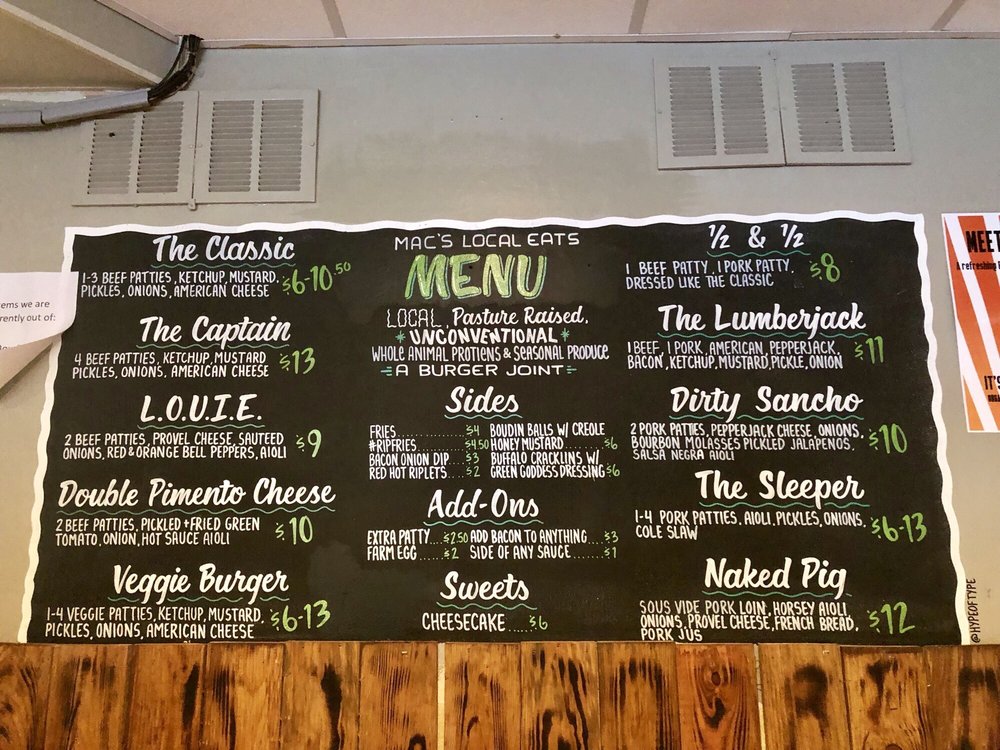 The Classic
1-3 BEEF PATTIES, KETCHUP, MUSTARD,
PICKLES, ONIONS, AMERICAN CHEESE
$6-10.50
The Captain
4 BEEF PATTIES, KETCHUP, MUSTARD
PICKLES, ONIONS, AMERICAN CHEESE
$13
L.O.U.I.E.
2 BEEF PATTIES, PROVEL CHEESE, SAUTEED
ONIONS, RED & ORANGE BELL PEPPERS, AIOLI
$9
Double Pimento Cheese
2 BEEF PATTIES, PICKLED + FRIED GREEN
TOMATO, ONION, HOT SAUCE AIOLI
$10
Veggie Burger
1-4 VEGGIE PATTIES, KETCHUP, MUSTARD,
PICKLES, ONIONS, AMERICAN CHEESE
$6-13
MAC'S LOCAL EATS
MENU
LOCAL, Pasture Raised,
*UNCONVENTIONAL*
WHOLE ANIMAL PROTIENS & SEASONAL PRODUCE
A BURGER JOINT
Sides
FRIES........$4
#RIPFRIES........$4.50
BACON ONION DIP...$3
RED HOT RIPLETS....$2
BOUDIN BALLS W/ CREOLE
HONEY MUSTARD........$6
BUFFALO CRACKLINS W/
GREEN GODDESS DRESSING $6
Add-Ons
EXTRA PATTY...$2.50
FARM EGG....$2
ADD BACON TO ANYTHING...$3
SIDE OF ANY SAUCE....$1
Sweets
CHEESECAKE...$6
1/2 & 1/2
1 BEEF PATTY, 1 PORK PATTY,
DRESSED LIKE THE CLASSIC
$8
The Lumberjack
1 BEEF, 1 PORK, AMERICAN, PEPPERJACK,
BACON, KETCHUP, MUSTARD, PICKLE, ONION
$11
Dirty Sancho
2 PORK PATTIES, PEPPERJACK CHEESE, ONIONS,
BOURBON MOLASSES PICKLED JALAPENOS,
SALSA NEGRA AIOLI
$10
The Sleeper
1-4 PORK PATTIES, AIOLI, PICKLES, ONIONS,
COLE SLAW
$6-13
Naked Pig
SOUS VIDE PORK LOIN, HORSEY AIOLI,
ONIONS, PROVEL CHEESE, FRENCH BREAD,
PORK JUS
$12
@HYPEOFTYPE
ems we are
rently out of:
MEET
A refreshing
IT'S